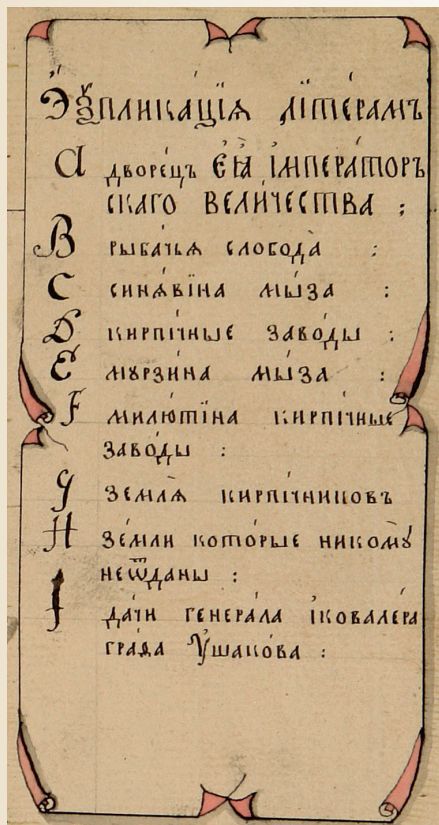 Э́ѯпликаціѧ лі́те́рамъ
A дворе́цъ Еѧ̀ імпера́торъ
скаго вели́чества :
B рыба́чьѧ слобода̀ :
C синѧ́віна мы́за :
D кирпі́чные заво́ды :
E мꙋ́рзина мы́за :
F милю́тіна кирпі́чные
заво́ды :
G землѧ̀ кирпі́чниковъ
H зе́мли кото́рые никомꙋ̀
неѿданы :
I да́чи генера́ла іковале́ра
гра́ѳа Ꙋшако́ва :